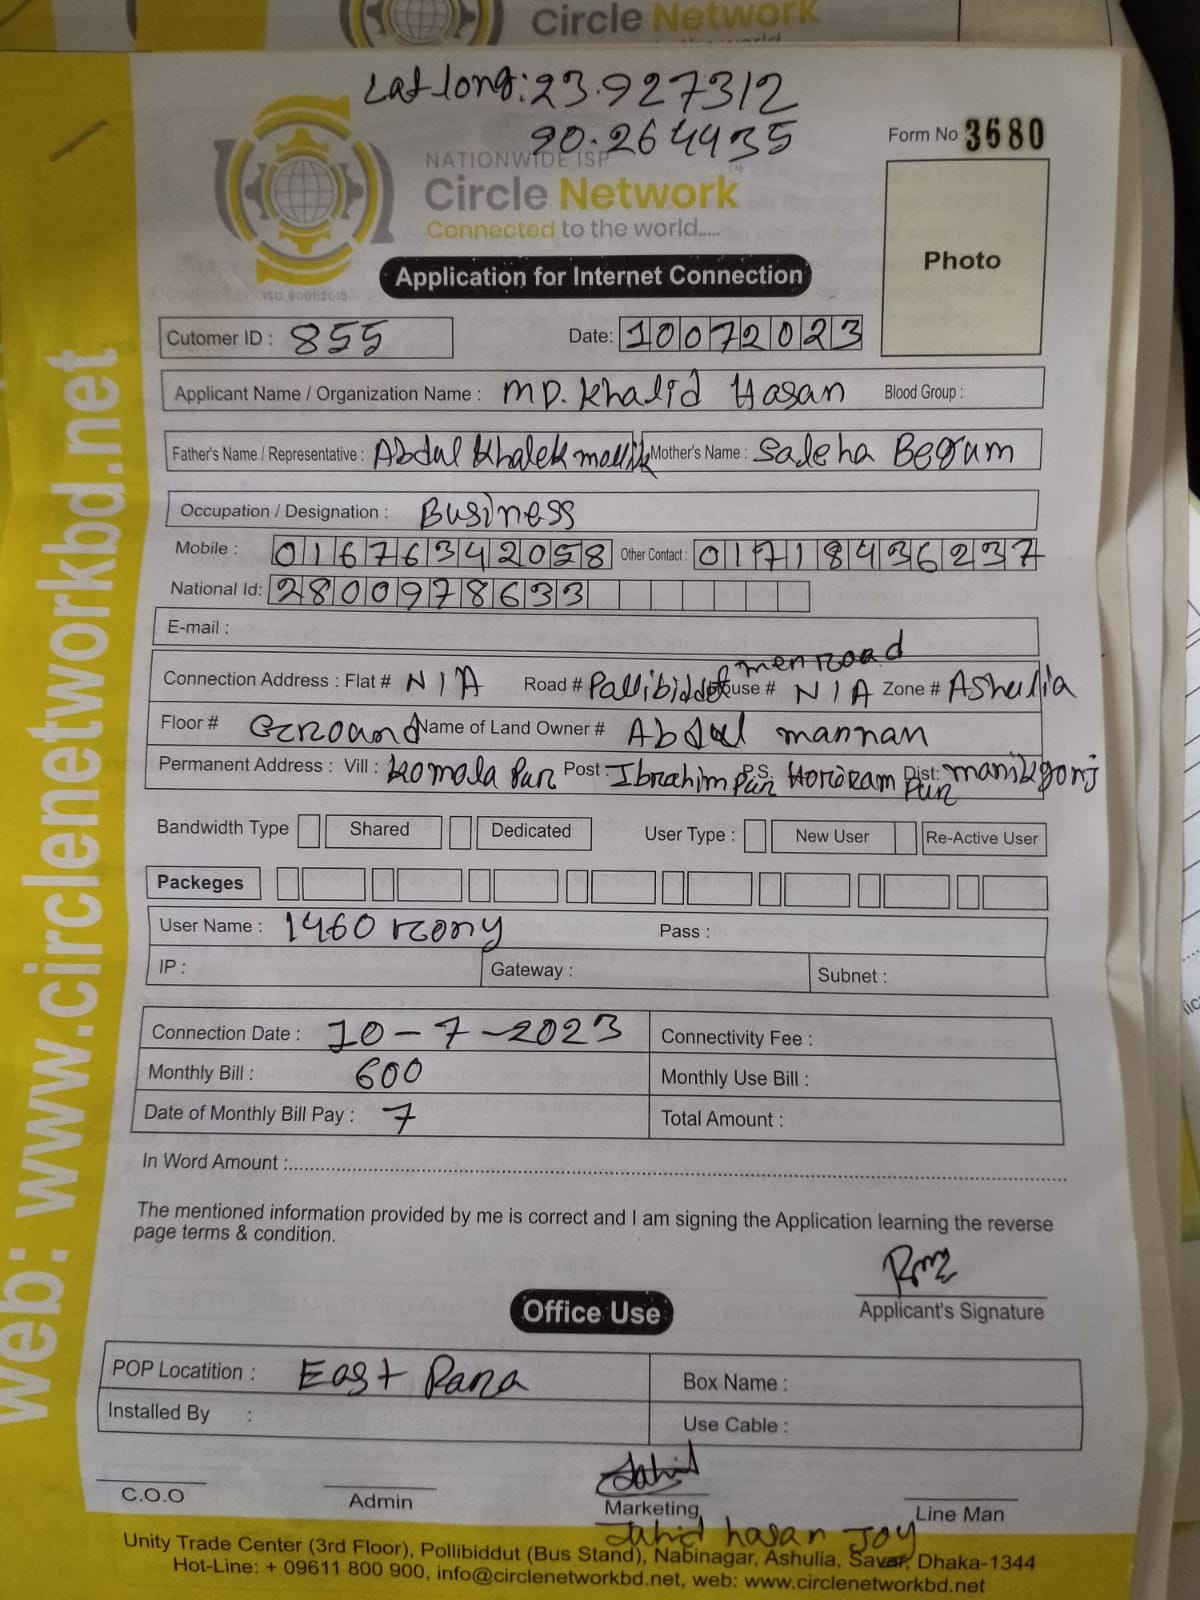 Circle Network
Lat long: 23.927312
90.264435
Form No 3680
NATIONWIDE ISP
Circle Network
Connected to the world.....
ISO 9001:2015
Photo
Application for Internet Connection
Cutomer ID : 855 Date: 10072023
Applicant Name / Organization Name : MD. Khalid Hasan Blood Group :
Father's Name / Representative : Abdul Khalek mallik Mother's Name : Saleha Begum
Occupation / Designation : Business
Mobile : 01676342058 Other Contact : 01718436237
National Id: 2800978633
E-mail :
Connection Address : Flat # N/A Road # Pallibiddut men road House # N/A Zone # Ashulia
Floor # Ground Name of Land Owner # Abdul mannan
Permanent Address : Vill : Komola Pur Post : Ibrahim Pur P.S. Horiram Pur Dist: manikgonj
Bandwidth Type Shared Dedicated User Type : New User Re-Active User
Packeges
User Name : 1460 rony Pass :
IP : Gateway : Subnet :
Connection Date : 10-7-2023 Connectivity Fee :
Monthly Bill : 600 Monthly Use Bill :
Date of Monthly Bill Pay : 7 Total Amount :
In Word Amount :
The mentioned information provided by me is correct and I am signing the Application learning the reverse
page terms & condition.
Applicant's Signature
Office Use
POP Locatition : East Para Box Name :
Installed By : Use Cable :
Jahid
C.O.O Admin Marketing Line Man
Jahid hasan Joy
Unity Trade Center (3rd Floor), Pollibiddut (Bus Stand), Nabinagar, Ashulia, Savar, Dhaka-1344
Hot-Line: + 09611 800 900, info@circlenetworkbd.net, web: www.circlenetworkbd.net
web: www.circlenetworkbd.net